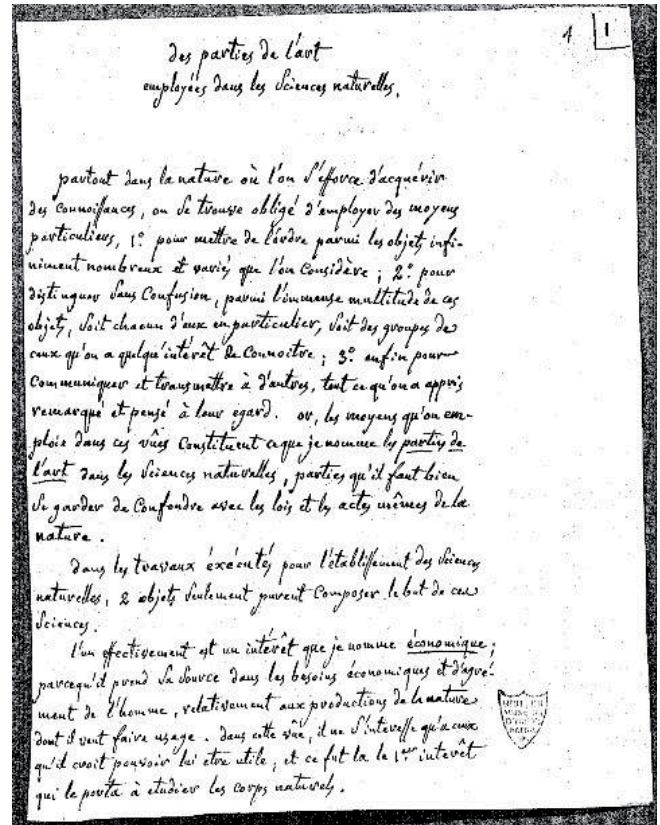 1 1
des parties de l'art
employées dans les Sciences naturelles.
partout dans la nature où l'on s'efforce d'acquérir
des connoissances, on se trouve obligé d'employer des moyens
particuliers, 1.º pour mettre de l'ordre parmi les objets infi-
niment nombreux et variés que l'on considère ; 2.º pour
distinguer sans confusion, parmi l'immense multitude de ces
objets, soit chacun d'eux en particulier, soit des groupes de
ceux qu'on a quelqu'intérêt de connoitre ; 3.º enfin pour
communiquer et transmettre à d'autres, tout ce qu'on a appris
remarqué et pensé à leur egard. or, les moyens qu'on em-
ploie dans ces vûes constituent ce que je nomme les parties de
l'art dans les Sciences naturelles, parties qu'il faut bien
se garder de confondre avec les lois et les actes mêmes de la
nature.
dans les travaux éxécutés pour l'établissement des Sciences
naturelles, 2 objets seulement purent composer le but de ces
Sciences.
l'un effectivement est un intérêt que je nomme économique ;
parcequ'il prend sa source dans les besoins économiques et d'agré-
ment de l'homme, relativement aux productions de la nature
dont il veut faire usage. dans cette vûe, il ne s'interesse qu'a ceux
qu'il croit pouvoir lui etre utile ; et ce fut la le 1.er interêt
qui le porta à etudier les corps naturels.